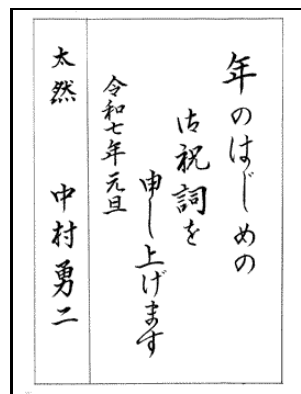 年のはじめの
御祝詞を
申し上げます
令和七年元旦
太然　中村勇二